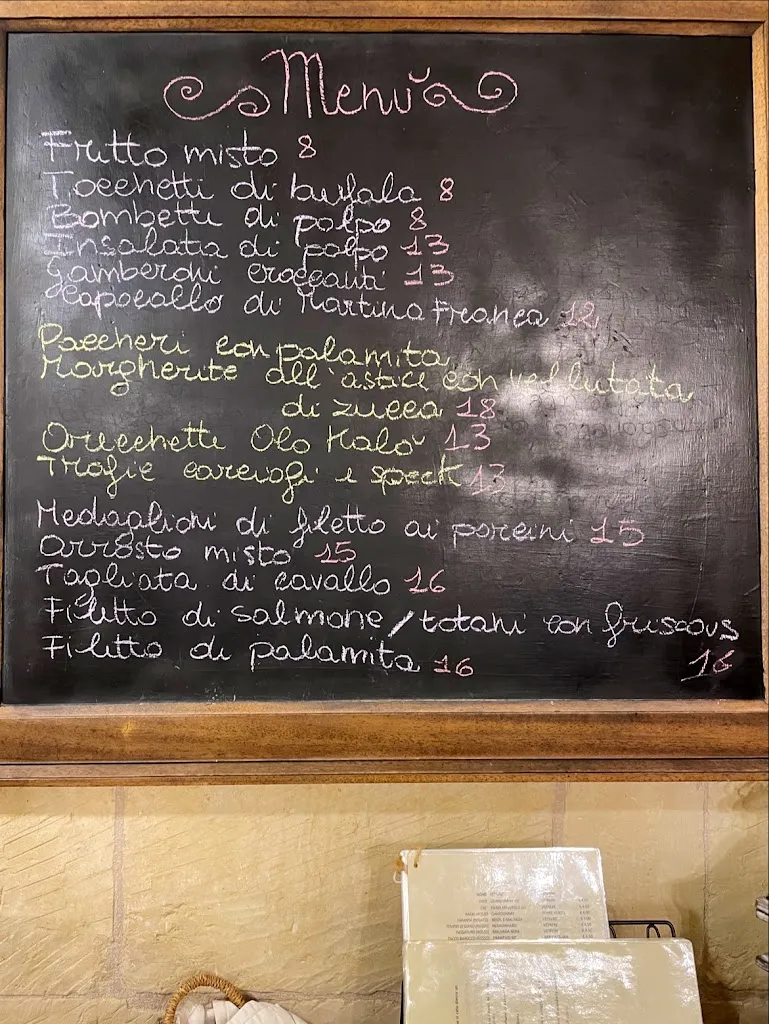 Menù
Frutto misto 8
Tocchetti di bufala 8
Bombette di polpo 8
Insalata di polpo 13
Gamberoni croccanti 13
Capocollo di Martina Franca 12
Paccheri con palamita
Margherite all'astice con vellutata
di zucca 18
Orecchette Olo Kalò 13
Trofie carciofi e speck 13
Medaglioni di filetto ai porcini 15
Arrosto misto 15
Tagliata di cavallo 16
Filetto di salmone / totani con friscous
16
Filetto di palamita 16